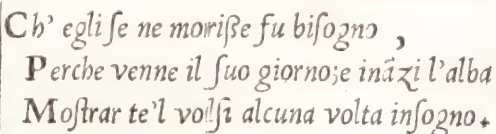 Ch' egli ſe ne moriſſe fu biſogno,
Perche venne il ſuo giorno; e inãzi l'alba
Moſtrar te'l volſi alcuna volta inſogno.